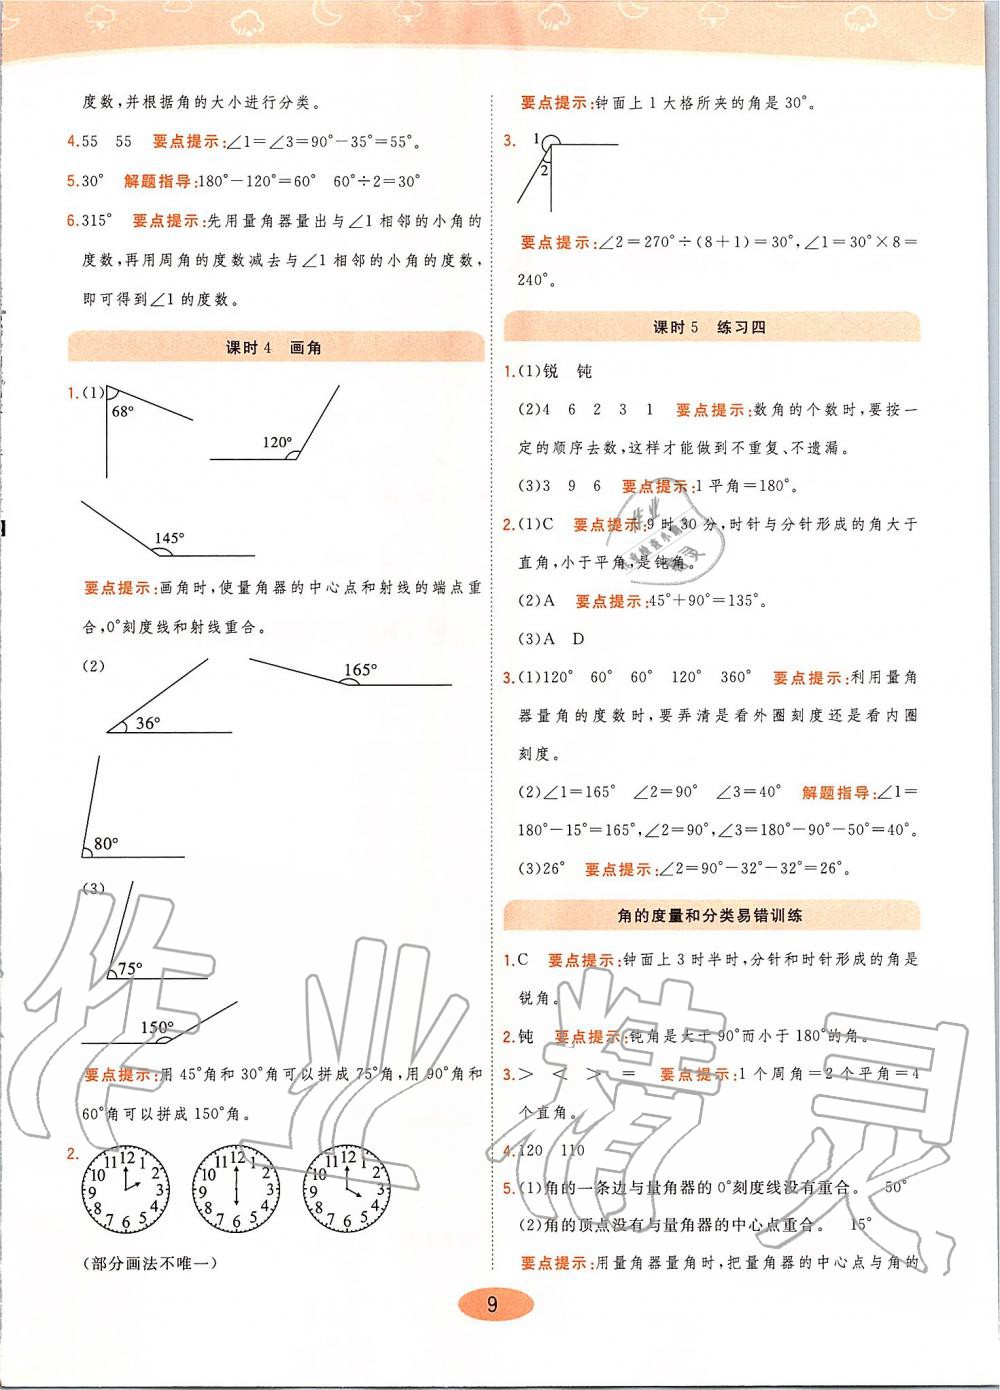 度数,并根据角的大小进行分类。
4.55 55 要点提示:∠1=∠3=90°-35°=55°。
5.30° 解题指导:180°-120°=60° 60°÷2=30°
6.315° 要点提示:先用量角器量出与∠1相邻的小角的
度数,再用周角的度数减去与∠1相邻的小角的度数,
即可得到∠1的度数。
课时4 画角
1.(1)
68°
120°
145°
要点提示:画角时,使量角器的中心点和射线的端点重
合,0°刻度线和射线重合。
(2)
36°
165°
80°
(3)
75°
150°
要点提示:用45°角和30°角可以拼成75°角,用90°角和
60°角可以拼成150°角。
2.
12 1 2 3 4 5 6 7 8 9 10 11
12 1 2 3 4 5 6 7 8 9 10 11
12 1 2 3 4 5 6 7 8 9 10 11
(部分画法不唯一)
要点提示:钟面上1大格所夹的角是30°。
3.
1
2
要点提示:∠2=270°÷(8+1)=30°,∠1=30°×8=
240°。
课时5 练习四
1.(1)锐 钝
(2)4 6 2 3 1 要点提示:数角的个数时,要按一
定的顺序去数,这样才能做到不重复、不遗漏。
(3)3 9 6 要点提示:1平角=180°。
2.(1)C 要点提示:9时30分,时针与分针形成的角大于
直角,小于平角,是钝角。
(2)A 要点提示:45°+90°=135°。
(3)A D
3.(1)120° 60° 60° 120° 360° 要点提示:利用量角
器量角的度数时,要弄清是看外圈刻度还是看内圈
刻度。
(2)∠1=165° ∠2=90° ∠3=40° 解题指导:∠1=
180°-15°=165°,∠2=90°,∠3=180°-90°-50°=40°。
(3)26° 要点提示:∠2=90°-32°-32°=26°。
角的度量和分类易错训练
1.C 要点提示:钟面上3时半时,分针和时针形成的角是
锐角。
2.钝 要点提示:钝角是大于90°而小于180°的角。
3.> < > = 要点提示:1个周角=2个平角=4
个直角。
4.120 110
5.(1)角的一条边与量角器的0°刻度线没有重合。 50°
(2)角的顶点没有与量角器的中心点重合。 15°
要点提示:用量角器量角时,把量角器的中心点与角的
9
作业精灵